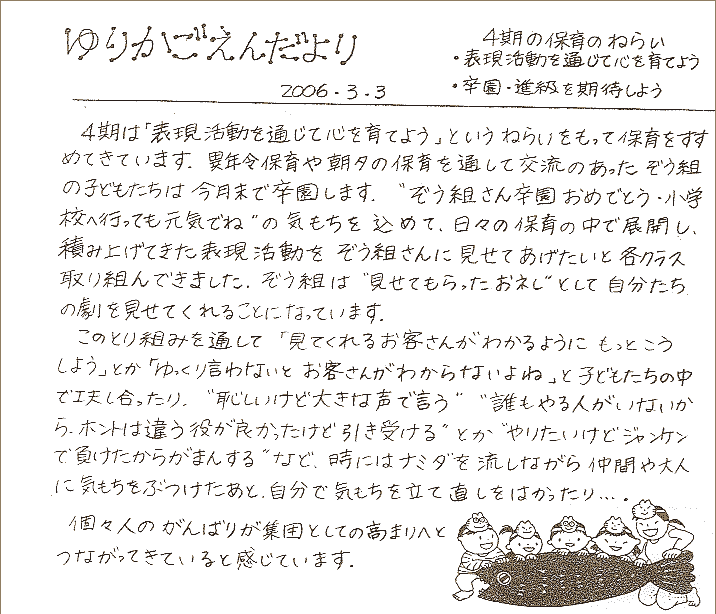 ゆりかごえんだより
4期の保育のねらい
・表現活動を通じて心を育てよう
・卒園・進級を期待しよう
2006・3・3
4期は「表現活動を通じて心を育てよう」というねらいをもって保育をすす
めてきています。異年令保育や朝夕の保育を通して交流のあったぞう組
の子どもたちは今月末で卒園します。"ぞう組さん卒園おめでとう・小学
校へ行っても元気でね"の気もちを込めて、日々の保育の中で展開し、
積み上げてきた表現活動をぞう組さんに見せてあげたいと各クラス
取り組んできました。ぞう組は"見せてもらったおネし"として自分たち
の劇を見せてくれることになっています。
このとり組みを通して「見てくれるお客さんがわかるようにもっとこう
しよう」とか「ゆっくり言わないとお客さんがわからないよね」と子どもたちの中
で工夫し合ったり、"恥しいけど大きな声で言う""誰もやる人がいないか
ら、ホントは違う役が良かったけど引き受ける"とか"やりたいけどジャンケン
で負けたからがまんする"など、時にはナミダを流しながら仲間や大人
に気もちをぶつけたあと、自分で気もちを立て直しをはかったり…。
個々人のがんばりが集団としての高まりへと
つながってきていると感じています。